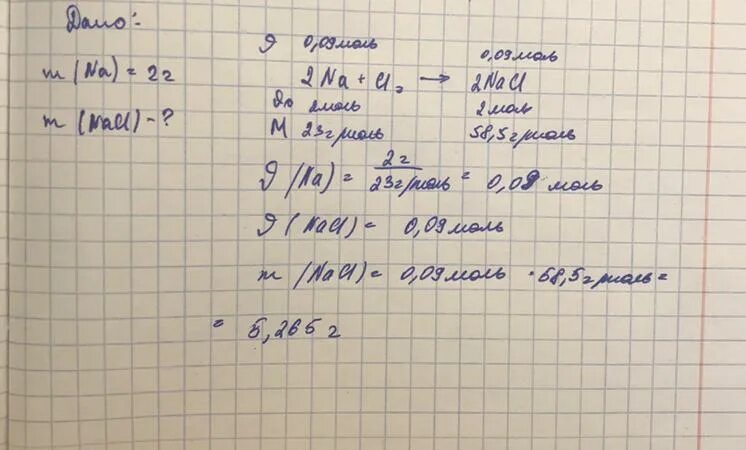 Дано:
m (Na) = 2г
m (NaCl) - ?
ν 0,09 моль 0,09 моль
2Na + Cl₂ → 2NaCl
ν₀ 2 моль 2 моль
M 23 г/моль 58,5 г/моль
ν (Na) = 2г / 23 г/моль = 0,09 моль
ν (NaCl) = 0,09 моль
m (NaCl) = 0,09 моль · 58,5 г/моль =
= 5,265 г